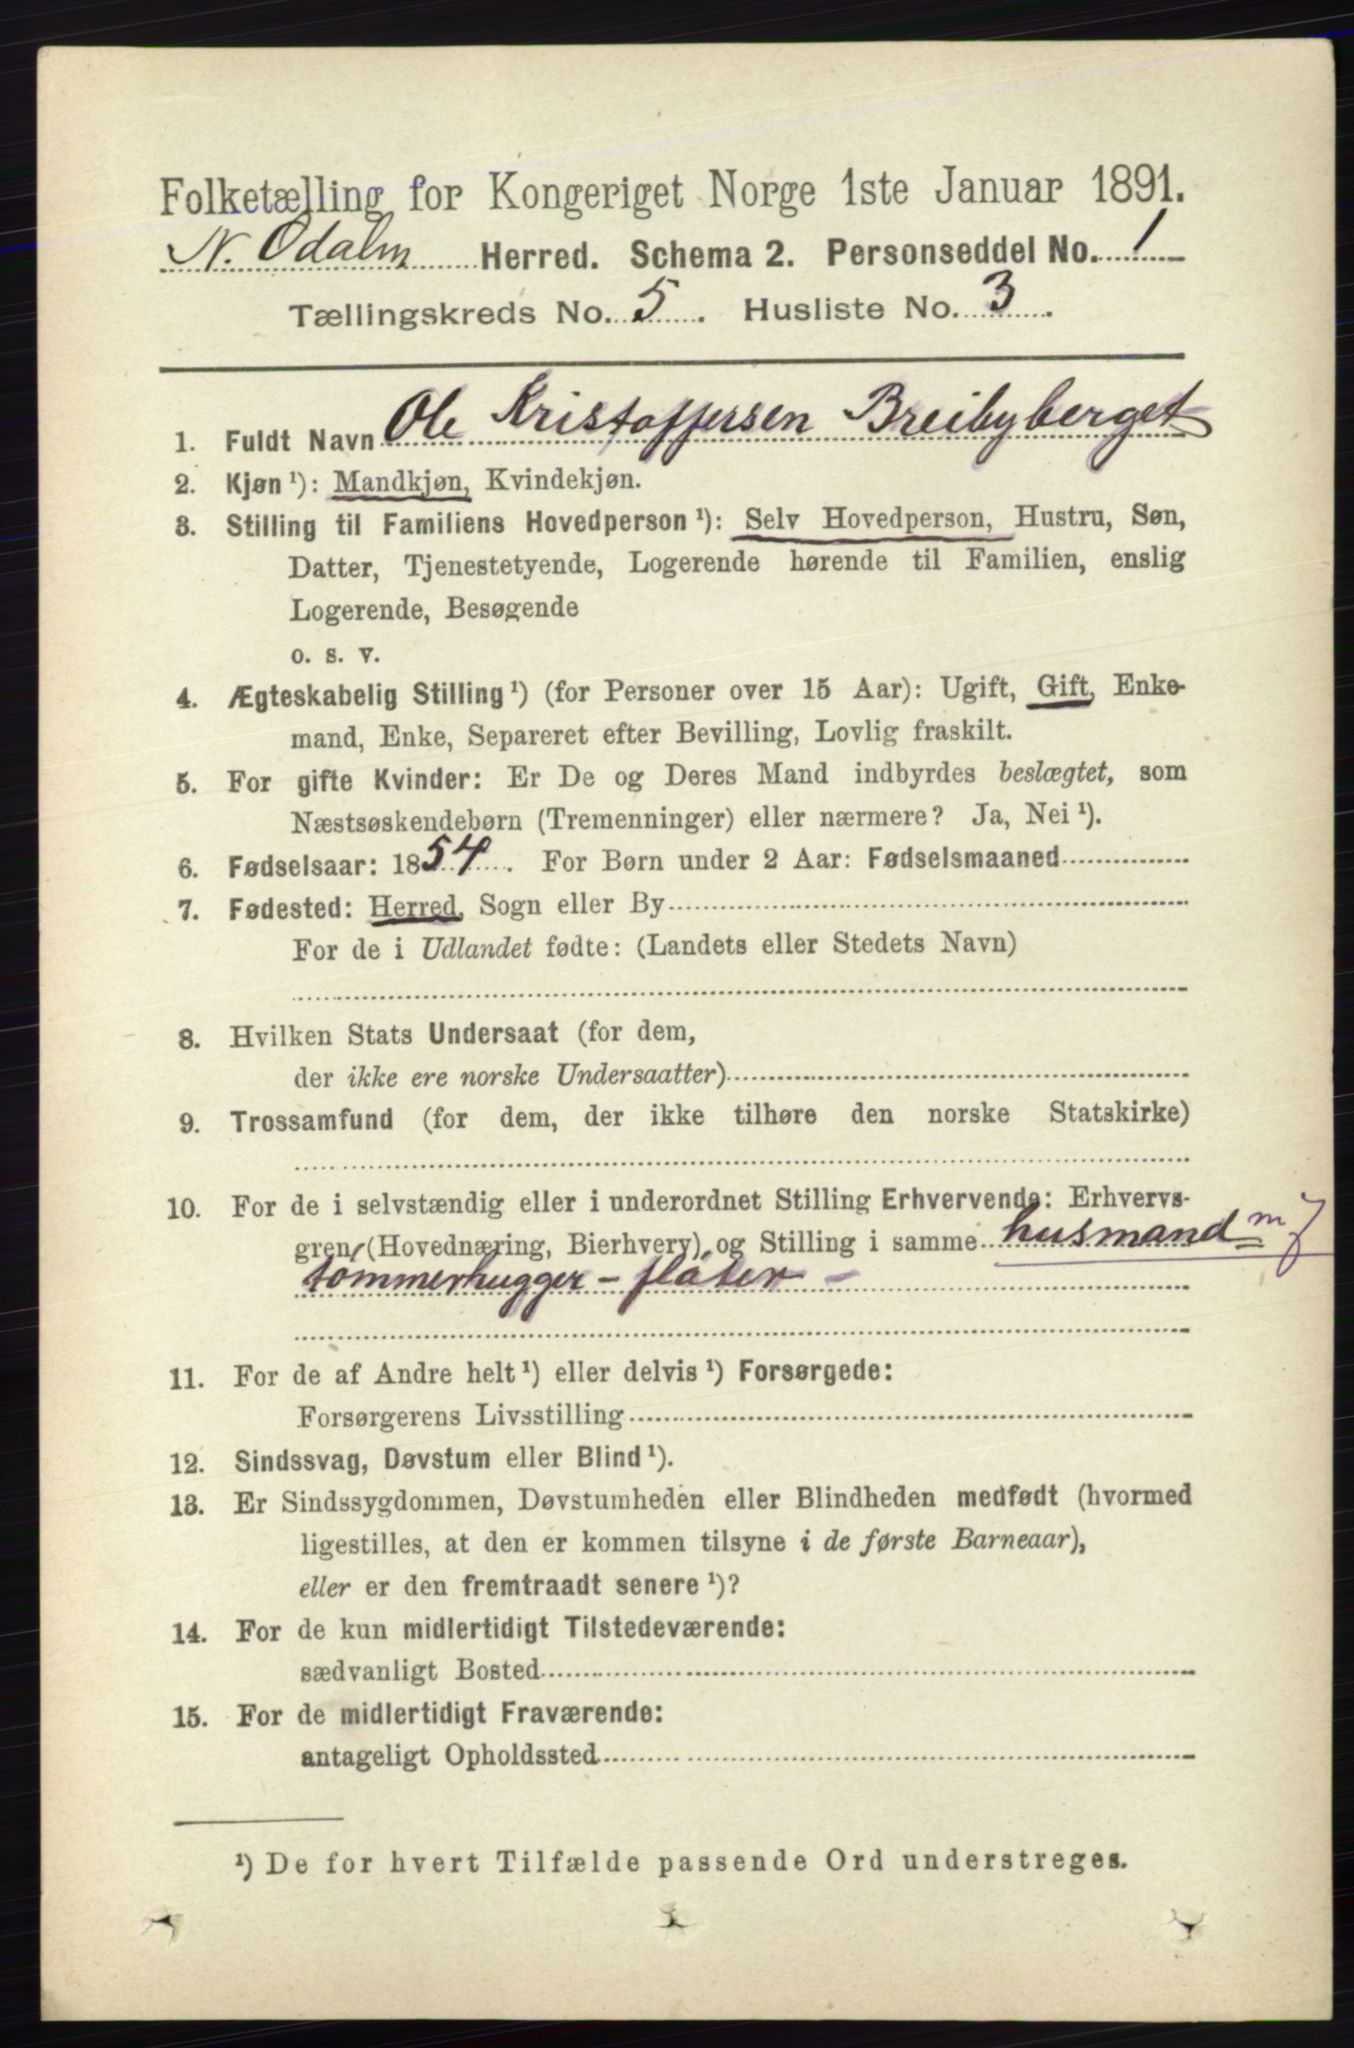 Folketælling for Kongeriget Norge 1ste Januar 1891.
N. Odalen Herred. Schema 2. Personseddel No. 1
Tællingskreds No. 5. Husliste No. 3.
1. Fuldt Navn Ole Kristoffersen Breibyberget
2. Kjøn ¹): Mandkjøn, Kvindekjøn.
3. Stilling til Familiens Hovedperson ¹): Selv Hovedperson, Hustru, Søn,
Datter, Tjenestetyende, Logerende hørende til Familien, enslig
Logerende, Besøgende
o. s. v.
4. Ægteskabelig Stilling ¹) (for Personer over 15 Aar): Ugift, Gift, Enke-
mand, Enke, Separeret efter Bevilling, Lovlig fraskilt.
5. For gifte Kvinder: Er De og Deres Mand indbyrdes beslægtet, som
Næstsøskendebørn (Tremenninger) eller nærmere? Ja, Nei ¹).
6. Fødselsaar: 1854. For Børn under 2 Aar: Fødselsmaaned
7. Fødested: Herred, Sogn eller By
For de i Udlandet fødte: (Landets eller Stedets Navn)
8. Hvilken Stats Undersaat (for dem,
der ikke ere norske Undersaatter)
9. Trossamfund (for dem, der ikke tilhøre den norske Statskirke)
10. For de i selvstændig eller i underordnet Stilling Erhvervende: Erhvervs-
gren (Hovednæring, Bierhverv) og Stilling i samme husmand m J
tømmerhugger - fløter -
11. For de af Andre helt ¹) eller delvis ¹) Forsørgede:
Forsørgerens Livsstilling
12. Sindssvag, Døvstum eller Blind ¹).
13. Er Sindssygdommen, Døvstumheden eller Blindheden medfødt (hvormed
ligestilles, at den er kommen tilsyne i de første Barneaar),
eller er den fremtraadt senere ¹)?
14. For de kun midlertidigt Tilstedeværende:
sædvanligt Bosted
15. For de midlertidigt Fraværende:
antageligt Opholdssted
¹) De for hvert Tilfælde passende Ord understreges.